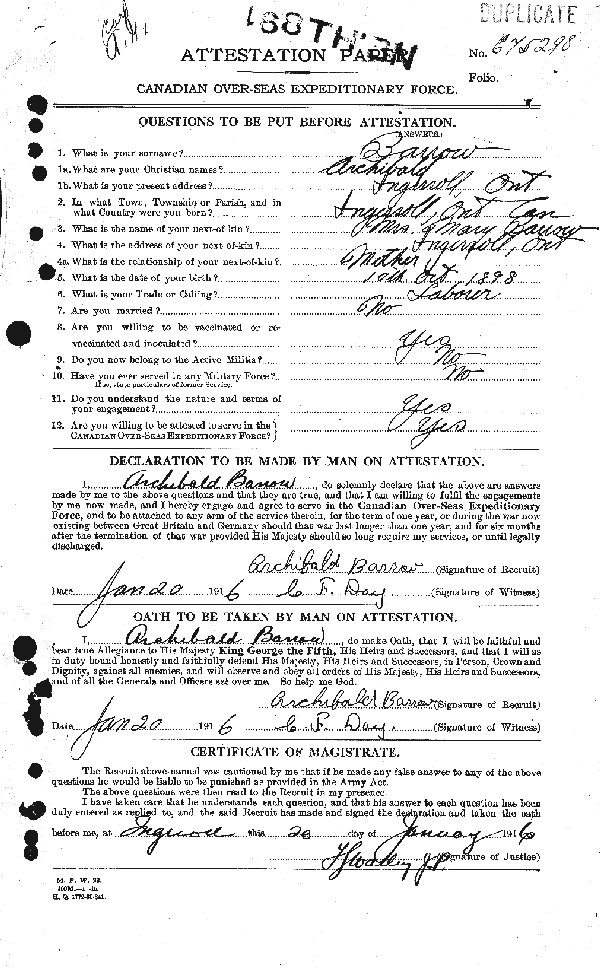 168TH BN.
DUPLICATE
ATTESTATION PAPER
No. 675298
Folio.
CANADIAN OVER-SEAS EXPEDITIONARY FORCE.
QUESTIONS TO BE PUT BEFORE ATTESTATION.
(ANSWERS)
1. What is your surname? Barrow
1a. What are your Christian names? Archibald
1b. What is your present address? Ingersoll, Ont
2. In what Town, Township or Parish, and in
what Country were you born? Ingersoll, Ont Can
3. What is the name of your next-of kin? Mrs. Mary Barrow
4. What is the address of your next-of-kin? Ingersoll, Ont
4a. What is the relationship of your next-of-kin? Mother
5. What is the date of your birth? 10th Oct 1898
6. What is your Trade or Calling? Labourer
7. Are you married? No
8. Are you willing to be vaccinated or re-
vaccinated and inoculated? Yes
9. Do you now belong to the Active Militia? No
10. Have you ever served in any Military Force? No
If so, state particulars of former Service.
11. Do you understand the nature and terms of
your engagement? Yes
12. Are you willing to be attested to serve in the
CANADIAN OVER-SEAS EXPEDITIONARY FORCE? Yes
DECLARATION TO BE MADE BY MAN ON ATTESTATION.
I, Archibald Barrow, do solemnly declare that the above are answers
made by me to the above questions and that they are true, and that I am willing to fulfil the engagements
by me now made, and I hereby engage and agree to serve in the Canadian Over-Seas Expeditionary
Force, and to be attached to any arm of the service therein, for the term of one year, or during the war now
existing between Great Britain and Germany should that war last longer than one year, and for six months
after the termination of that war provided His Majesty should so long require my services, or until legally
discharged.
Archibald Barrow (Signature of Recruit)
Date Jan 20 1916 C. F. Day (Signature of Witness)
OATH TO BE TAKEN BY MAN ON ATTESTATION.
I, Archibald Barrow, do make Oath, that I will be faithful and
bear true Allegiance to His Majesty King George the Fifth, His Heirs and Successors, and that I will as
in duty bound honestly and faithfully defend His Majesty, His Heirs and Successors, in Person, Crown and
Dignity, against all enemies, and will observe and obey all orders of His Majesty, His Heirs and Successors,
and of all the Generals and Officers set over me. So help me God.
Archibald Barrow (Signature of Recruit)
Date Jan 20 1916 C. F. Day (Signature of Witness)
CERTIFICATE OF MAGISTRATE.
The Recruit above-named was cautioned by me that if he made any false answer to any of the above
questions he would be liable to be punished as provided in the Army Act.
The above questions were then read to the Recruit in my presence.
I have taken care that he understands each question, and that his answer to each question has been
duly entered as replied to, and the said Recruit has made and signed the declaration and taken the oath
before me, at Ingersoll this 20 day of January 1916
J.P. (Signature of Justice)
M. F. W. 23.
H. Q. 1772-39-241.